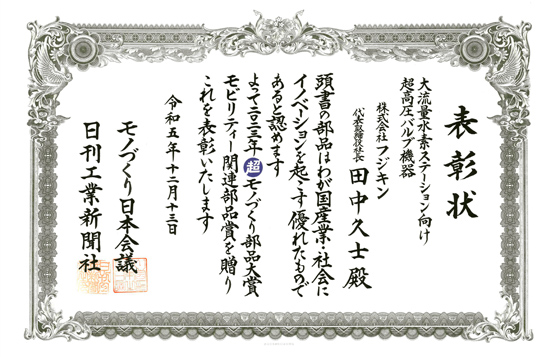 表彰状
大流量水素ステーション向け
超高圧バルブ機器
株式会社フジキン
代表取締役社長 田中久士殿
頭書の部品はわが国産業・社会に
イノベーションを起こす優れたもので
あると認めます
よって二〇二三年超モノづくり部品大賞
モビリティー関連部品賞を贈り
これを表彰いたします
令和五年十二月十三日
モノづくり日本会議
日刊工業新聞社